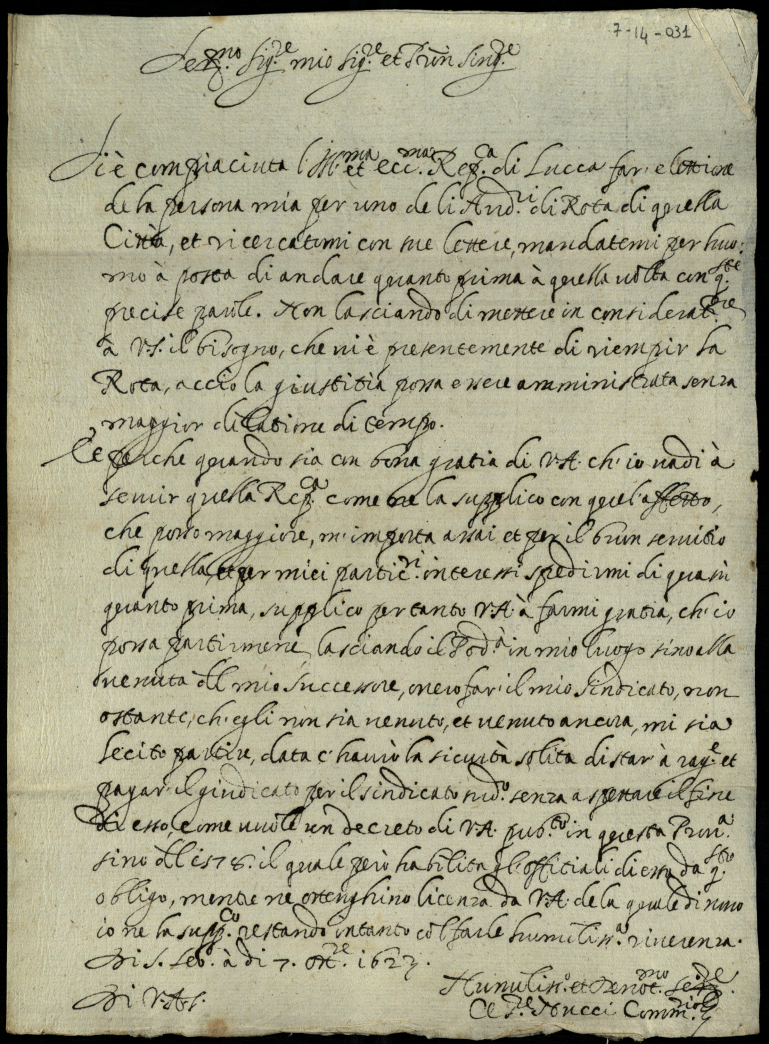 7-14-031
Ser.mo Sig.re mio Sig.re et Pron Sing.re
Si è compiaciuta l'Ill.ma et ecc.ma Rep.ca di Lucca far' elettione
de la persona mia per uno de li Aud.ri di Rota di quella
Città, et ricercatomi con sue lettere, mandatemi per huo:
mo à posta di andare quanto prima à quella uolta con q.ste
precise parole. Non lasciando di mettere in considerat.ne
à V.S. il bisogno, che ui è presentemente di riempir la
Rota, acciò la giustitia possa essere amministrata senza
maggior dilatione di tempo.
Et perche quando sia con bona gratia di V.A. ch'io uadi à
seruir quella Rep.ca come ne la supplico con quel'affetto,
che posso maggiore, m'importa assai et per il buon seruitio
di quella, et per miei partic.ri interessi spedirmi di quasù
quanto prima, supplico per tanto V.A. à farmi gratia, ch'io
possa partirmene, lasciando il Pod.à in mio luogo sino alla
uenuta del mio Successore, ouero far' il mio Sindicato, non
ostante, ch'egli non sia uenuto, et uenuto ancora, mi sia
lecito partire, data c'haurò la sicurtà solita di star' à rag.e et
pagar' il giudicato per il sindicato sud.o senza aspettare il fine
di esso, come uuole un decreto di V.A. pub.co in questa Prou.a
sino del 1578. il quale però habilita gl'offitiali di essa da q.sto
obligo, mentre ne ottenghino licenza da V.A. de la quale di nuouo
io ne la supp.co restando intanto col farle humiliss.a riuerenza.
Di S. Leo. à di 7. Ott.re 1627.
Di V.A.S.
Humiliss.o et Deuot.mo Se.re
Ce.re Nucci Comm.rio